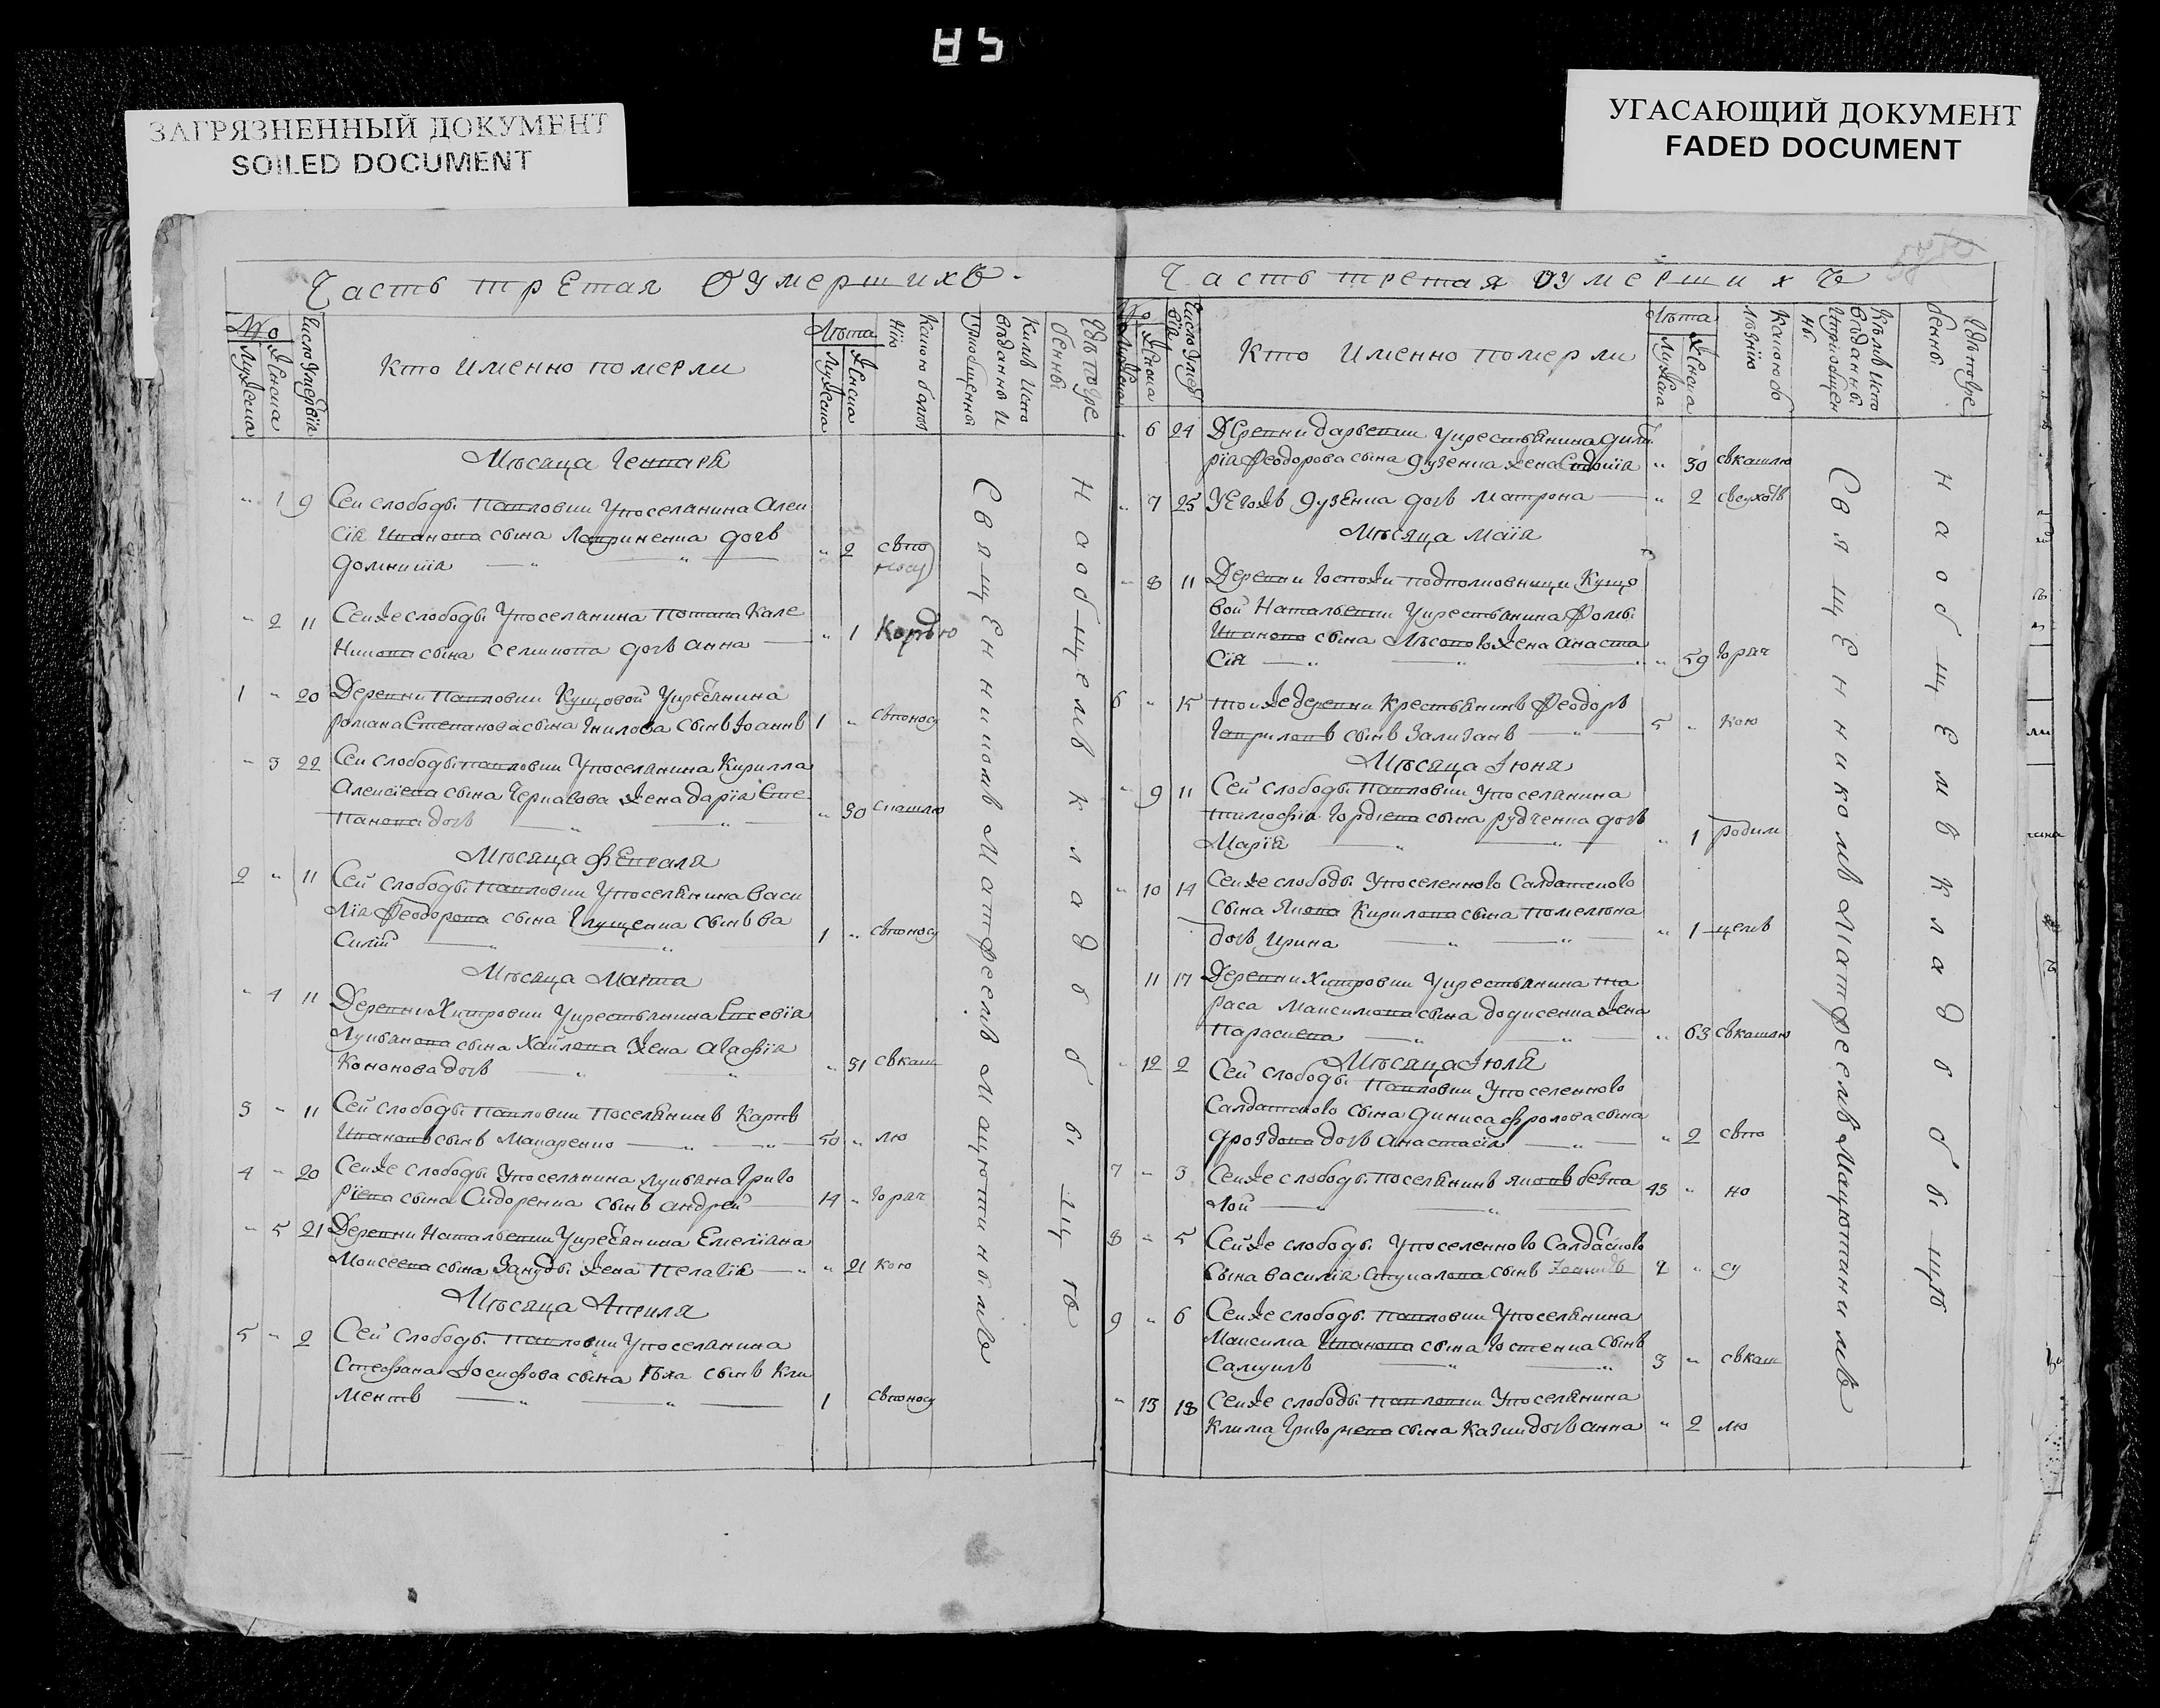 85
ЗАГРЯЗНЕННЫЙ ДОКУМЕНТ
SOILED DOCUMENT
УГАСАЮЩИЙ ДОКУМЕНТ
FADED DOCUMENT
Часть третая оумершихъ
№
Мужеска
Женска
Число умертвїя
Кто именно померли
Лѣта
Мужеска
Женска
Какою болѣз
нїю
Кѣмъ испо
вѣданны и
прїобщенны
Гдѣ погре
бенны
Мѣсяца Генваря
" 1 9 Сей слободы Павловки упоселянина Алек
сїя Иванова сына Лавриненка дочь
Домникїя " 2 сьпо
носу
" 2 11 Сейже слободы упоселянина Потапа Кале
никова сына Семикопа дочь Анна " 1 Корью
1 " 20 Деревни Павловки Кущовой укресьянина
Романа Степанова сына Гнилова сынъ Іоаннъ 1 " сьпоносу
" 3 22 Сей слободы Павловки упоселянина Кирилла
Алексїева сына Черкасова жена Дарїя Сте
панова дочь " 30 скашлю
Мѣсяца Февраля
2 " 11 Сей слободы Павловки упоселянина Васи
лїя Феодорова сына Глущенка сынъ Ва
силїй 1 " сьпоносу
Мѣсяца Марта
" 4 11 Деревни Хитровки укрестьянина Евсевїя
Лукьянова сына Хайлова жена Агафїя
Кононова дочь " 51 ськаш
3 " 11 Сей слободы Павловки поселянинъ Карпъ
Ивановъ сынъ Макаренко 50 " лю
4 " 20 Сейже слободы упоселянина Лукьяна Григо
рїева сына Сидоренка сынъ Андрей 14 " горяч
" 5 21 Деревни Натальевки укресьянина Емелїана
Моисеева сына Занузды жена Пелагїя " 21 кою
Мѣсяца Априля
5 " 2 Сей слободы Павловки упоселянина
Стефана Іосифова сына сынъ Кли
ментъ 1 сьпоносу
Священникомъ Матфеемъ Мацютинымъ
На общемъ кладбѣщѣ
Часть третая оумершихъ
Мужеска
Женска
Число умерт
вїя
Кто именно померли
Лѣта
Мужеска
Женска
Какою бо
лѣзнїю
Кѣмъ испо
вѣданны
ипрїобщен
ны
Гдѣ погре
бенны
" 6 24 Деревни Дарьевки укрестьянина
рїя Феодорова сына Дузенка жена Евдокїя " 30 ськашлю
" 7 25 Дузенка дочь Матрона " 2
Мѣсяца Маїя
" 8 11 Деревни Госпожи подполковници Кущо
вой Натальевки укрестьянина Фомы
Иванова сына жена Анаста
сїя " 59 горяч
6 " 15 тойже деревни крестьянинъ Феодоръ
Гавриловъ сынъ Зализанъ 5 " кою
Мѣсяца Іюня
" 9 11 Сей слободы Павловки упоселянина
Тимофїя Гордїева сына Рудченка дочь
Марїя " 1 родим
" 10 14 Сейже слободы упоселенного салдатского
сына Якова Кирилова сына Помелюна
дочь Ирина " 1 цемъ
11 17 Деревни Хитровки укрестьянина Та
раса Максимова сына жена
Параскева " 63 ськашлю
Мѣсяца Іюля
" 12 2 Сей слободы Павловки упоселенного
салдатского сына Дїниса Фролова сына
Дроздова дочь Анастасїя " 2 сьпо
7 " 3 Сейже слободы поселянинъ Яковъ
лой 43 " но
8 " 5 Сейже слободы упоселенного салдаского
сына Василїя сынъ " су
9 " 6 Сейже слободы Павловки упоселянина
Максима Иванова сына Костенка сынъ
Самуилъ 3 " ськаш
" 13 18 Сейже слободы Павловки упоселянина
Клима Григорїева сына дочь Анна " 2 лю
Священникомъ Матфеемъ Мацютинимъ
На общемъ кладбѣщѣ